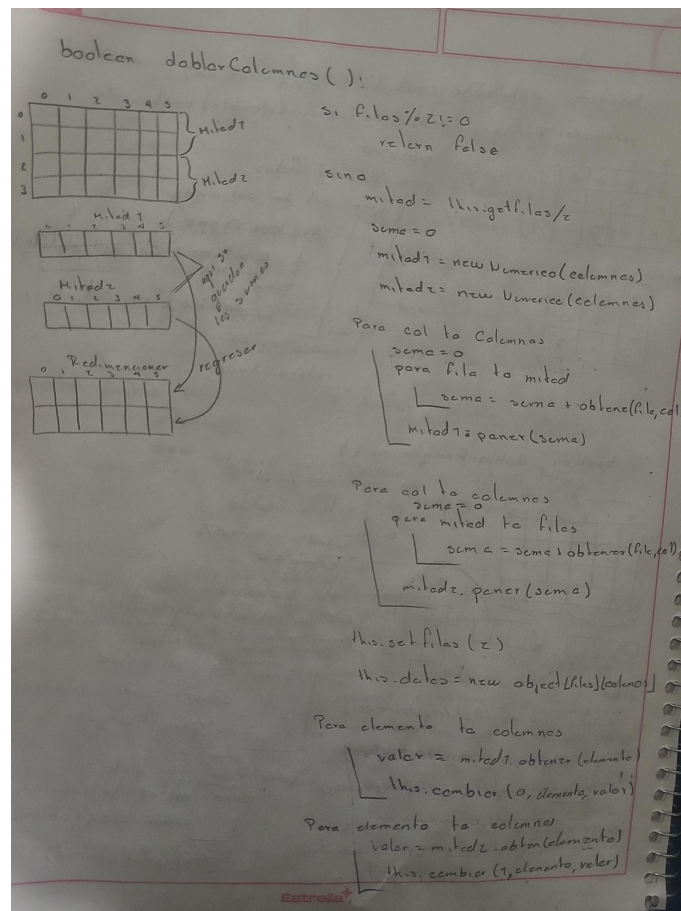 boolean doblarColumnas():
0 1 2 3 4 5
0
1
2
3
Mitad1
Mitad2
Mitad 1
0 1 2 3 4 5
Mitad2
0 1 2 3 4 5
aqui se
guardan
las sumas
regresar
Redimencionar
0 1 2 3 4 5
si filas%2!=0
return false
sino
mitad = this.getfilas/2
suma = 0
mitad1 = new Numerico(columnas)
mitad2 = new Numerico(columnas)
Para col to Columnas
suma = 0
para fila to mitad
suma = suma + obtene(fila,col
mitad1.poner(suma)
Para col to columnas
suma = 0
para mitad to filas
suma = suma + obtener(fila,col)
mitad2.poner(suma)
this.setfilas(2)
this.datos = new object[filas][colunas]
Para elemento to columnas
valor = mitad1.obtener(elemento)
this.cambiar(0, elemento, valor)
Para elemento to columnas
valor = mitad2.obten(elemento)
this.cambiar(1, elemento, valor)
Estrella